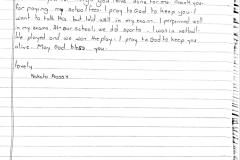 for paying my school fees. I pray to God to keep you. I
want to tell that but did well in my exam. I performed well
in my exams. At our school, we did sports. I was in netball.
We played and we won the play. I pray to God to keep you
alive. May God bless you.
lovely